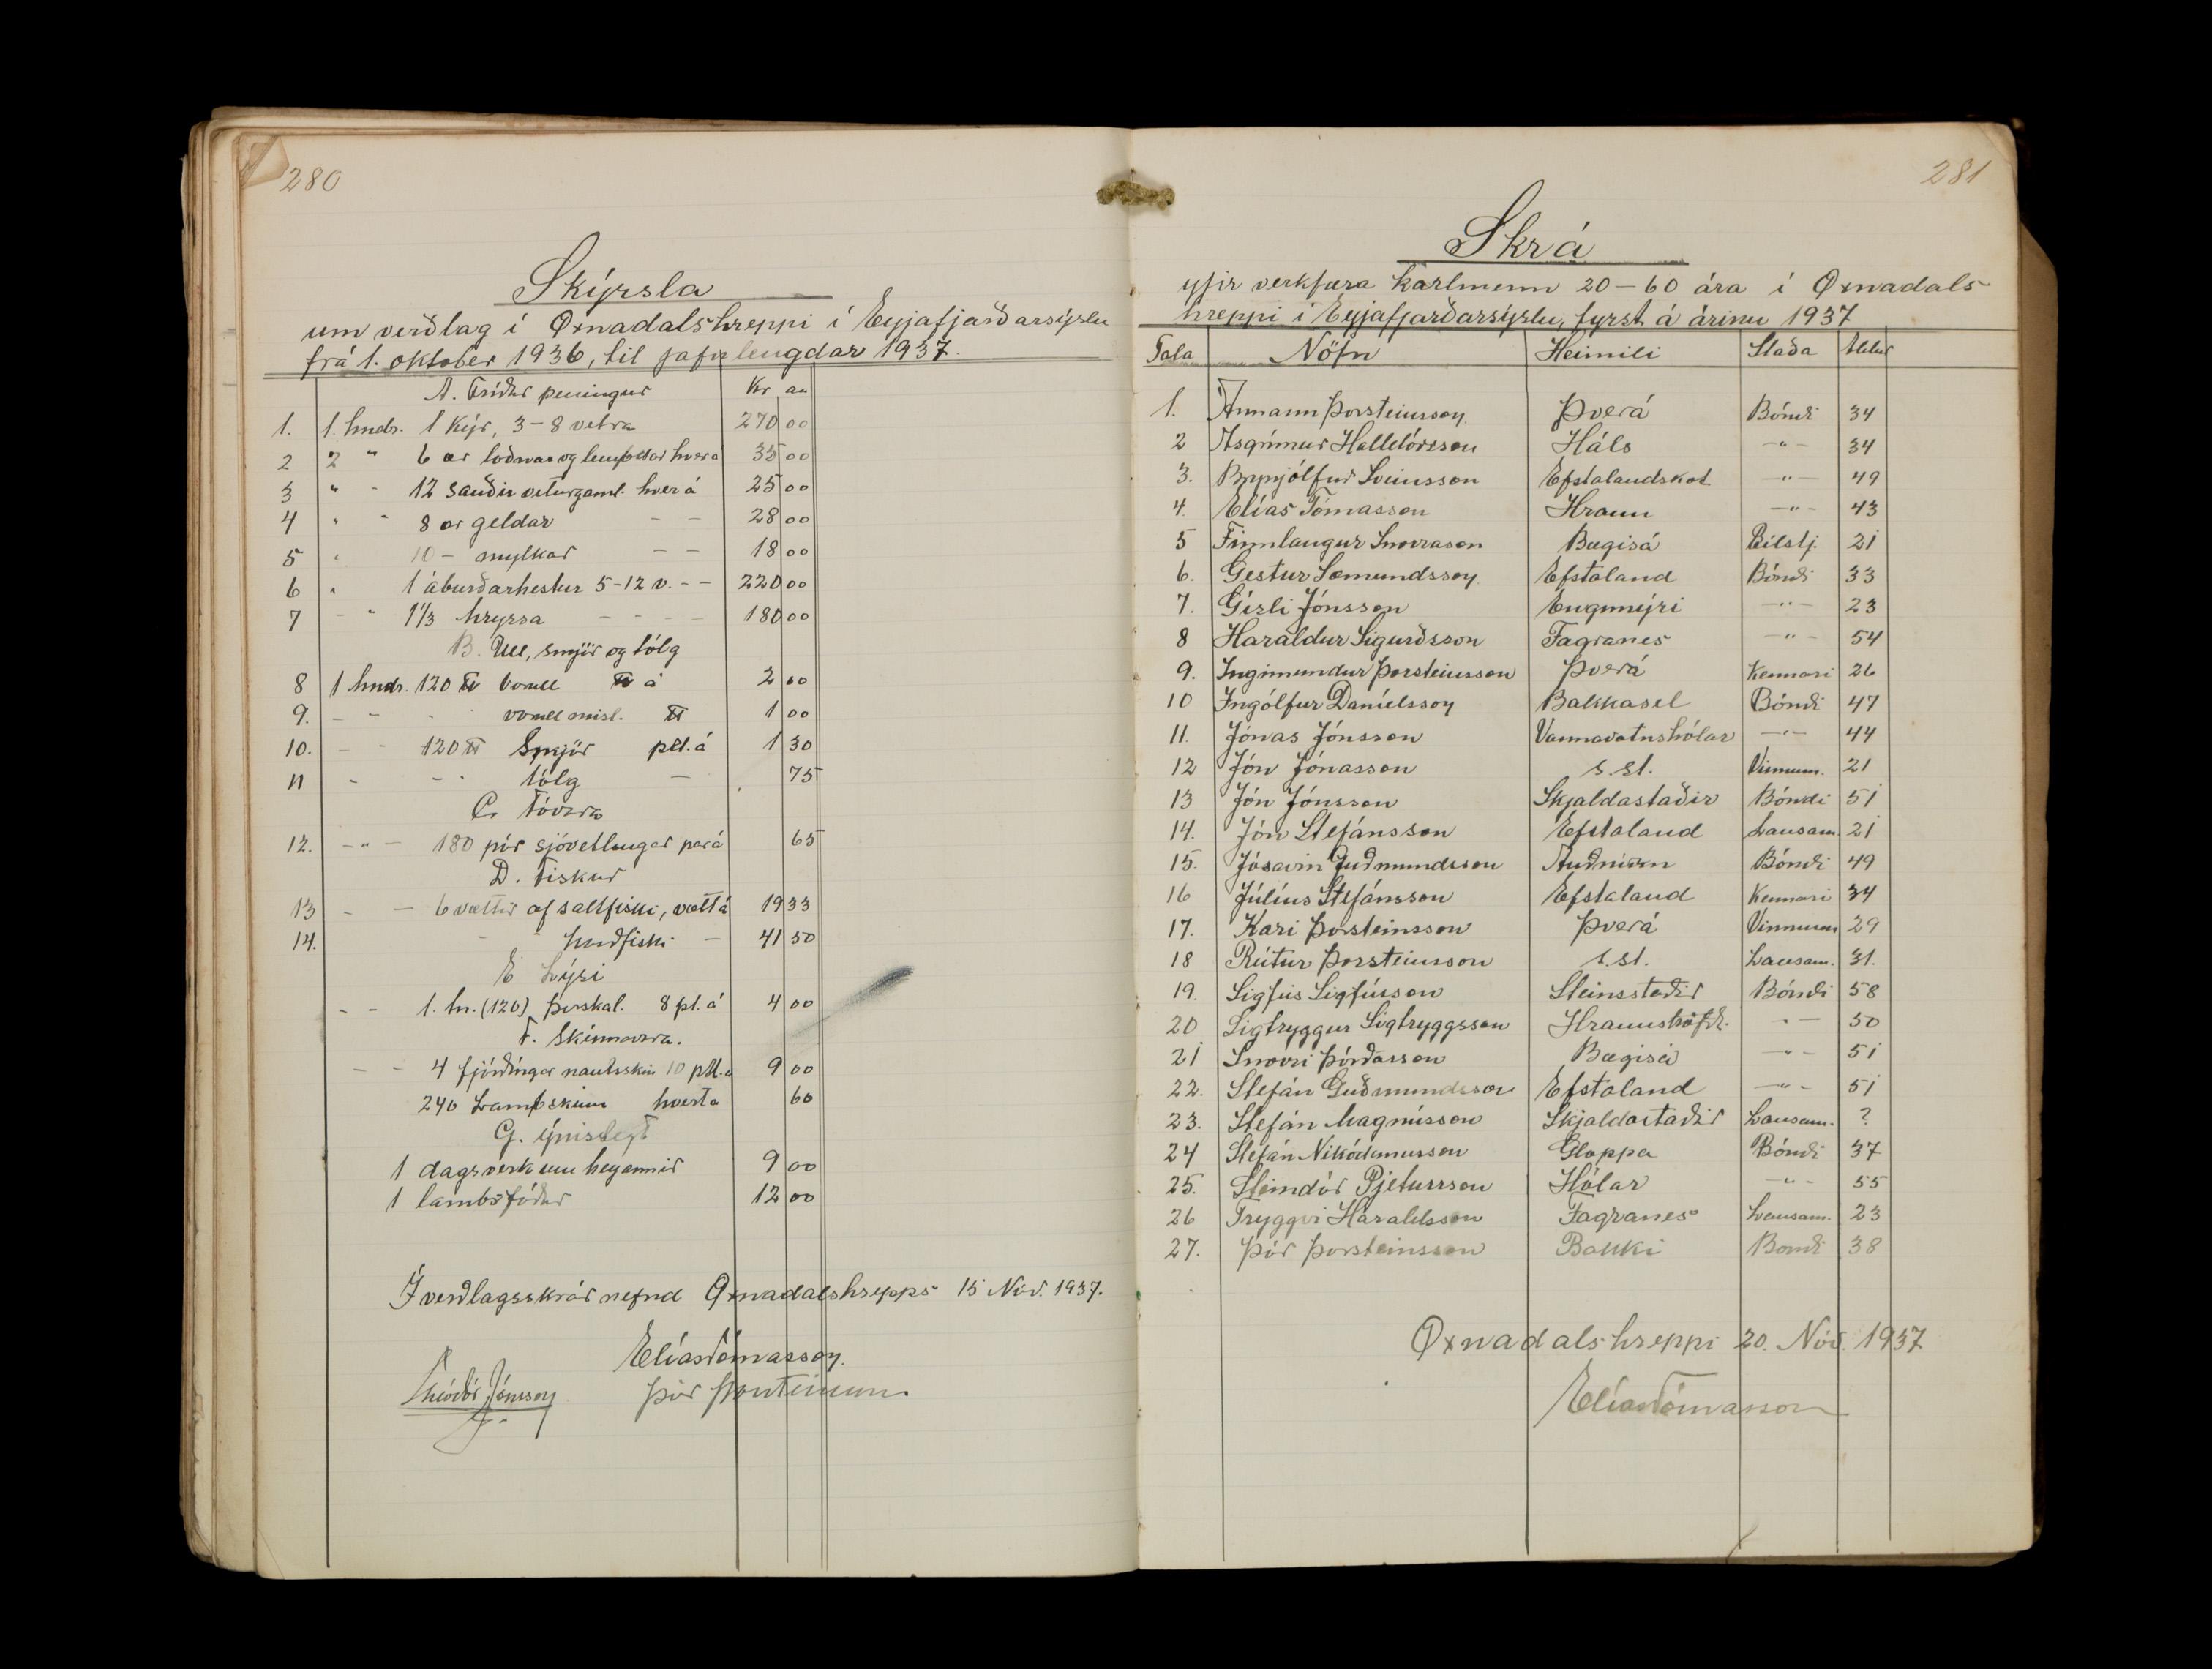 280
Skýrsla
um verðlag í Öxnadalshreppi í Eyjafjarðarsýslu
frá 1. oktober 1936, til jafnlengdar 1937.
A. Fríður peningur Kr au
1. 1. hndr. 1 Kýr, 3-8 vetra 270 00
2 2 " 6 ær loðnar og lembdar hver á 35 00
3 " - 12 sauðir veturgaml. hver á 25 00
4 " - 8 ær geldar - - 28 00
5 " 10 - mylkar - - 18 00
6 " 1 áburðarhestur 5-12 v. - - 220 00
7 - " 1 1/3 hryssa - - - - 180 00
B. Ull, smjör og tólg
8 1 hndr. 120 ℔ vorull ℔ á 2 00
9. - - - vorull misl. ℔ 1 00
10. - - 120 ℔ Smjör pd. á 1 30
11 - - - tólg - 75
C. Tóvara
12. -"- 180 pör sjóvetlingar par á 65
D. Fiskur
13 - - 6 vættir af saltfiski, vætt á 19 33
14. - harðfiski - 41 50
E Lýsi
- - 1. hn. (120) Þorskal. 8 pt. á 4 00
F. Skinnavara.
- - 4 fjórðingar nautsskin 10 pd. á 9 00
240 Lambskinn hvert á 60
G. Ýmislegt
1 dagsverk um heyannir 9 00
1 lambsfóður 12 00
Í verðlagsskrárnefnd Öxnadalshrepps 15 Nóv. 1937.
Elías Tómasson.
Theódór Jónsson Þór Þorsteinsson
281
Skrá
yfir verkfæra karlmenn 20-60 ára í Öxnadals-
hreppi í Eyjafjarðarsýslu, fyrst á árinu 1937
Tala Nöfn Heimili Staða Aldur
1. Ármann Þorsteinsson Þverá Bóndi 34
2 Ásgrímur Halldórsson Háls -"- 34
3. Brynjólfur Sveinsson Efstalandskot -"- 49
4. Elías Tómasson Hraun -"- 43
5 Finnlaugur Snorrason Bægisá Bílstj. 21
6. Gestur Sæmundsson Efstaland Bóndi 33
7. Gísli Jónsson Engimýri -"- 23
8 Haraldur Sigurðsson Fagranes -"- 54
9. Ingimundur Þorsteinsson Þverá Kennari 26
10 Ingólfur Daníelsson Bakkasel Bóndi 47
11. Jónas Jónsson Vannavatnshólar -"- 44
12 Jón Jónasson s.st. Vinnum. 21
13 Jón Jónsson Skjaldastaðir Bóndi 51
14. Jón Stefánsson Efstaland Lausam. 21
15. Jósavin Guðmundsson Auðnum Bóndi 49
16 Júlíus Stefánsson Efstaland Kennari 34
17. Kari Þorsteinsson Þverá Vinnum 29
18 Rútur Þorsteinsson s.st. Lausam. 31.
19. Sigfús Sigfússon Steinsstaðir Bóndi 58
20 Sigtryggur Sigtryggsson Hraunshöfði. -"- 50
21 Snorri Þórðarson Bægisá -"- 51
22. Stefán Guðmundsson Efstaland -"- 51
23. Stefán Magnússon Skjaldastaðir Lausam. ?
24 Stefán Nikódemusson Gloppa Bóndi 37
25. Steindór Pjetursson Hólar -"- 55
26 Tryggvi Haraldsson Fagranes Lausam. 23
27. Þór Þorsteinsson Bakki Bondi 38
Öxnadalshreppi 20. Nóv. 1937
Elías Tómasson